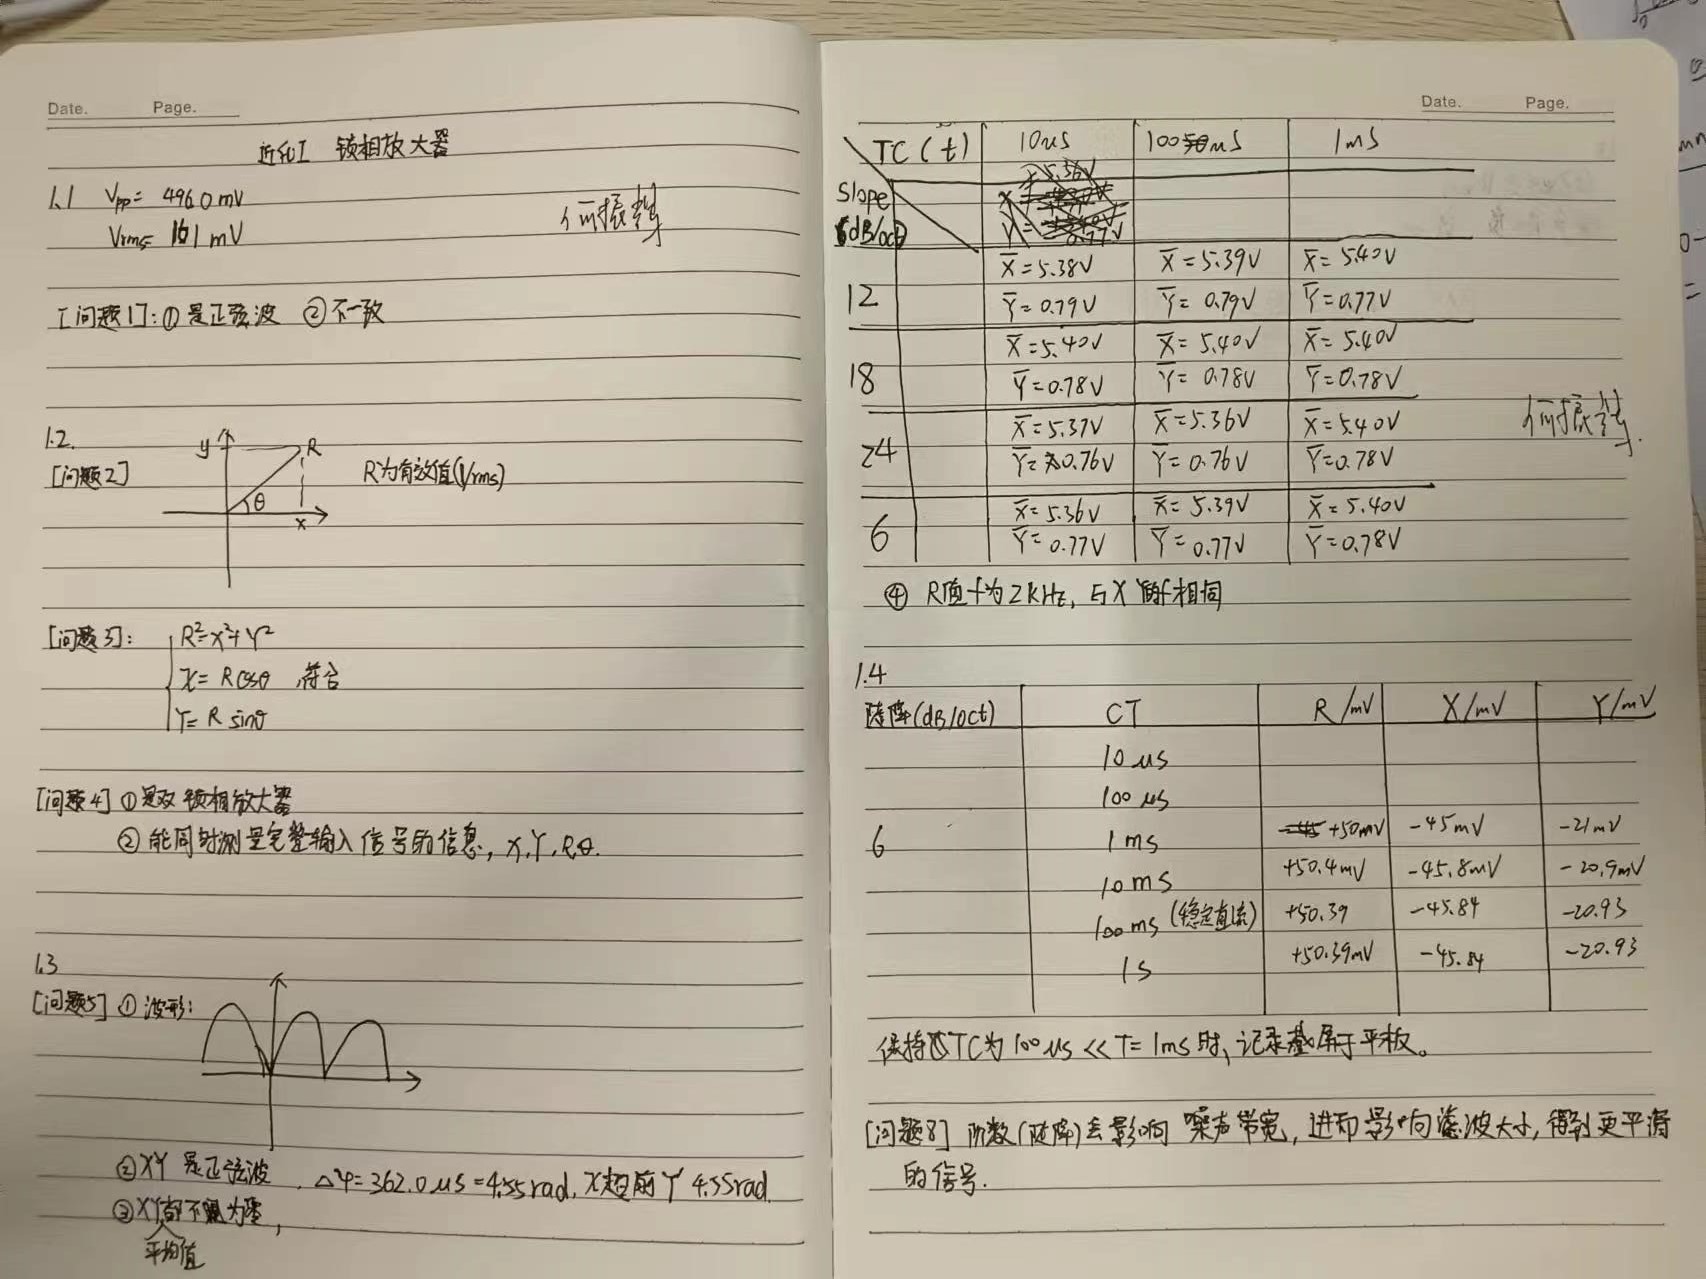 Date. Page.
近代I 锁相放大器
1.1 Vpp = 496.0 mV
Vrms = 161 mV
[问题1]: ① 是正弦波 ② 不一致
1.2.
[问题2]
y
R
θ
x
R为有效值(Vrms)
[问题3]: R²=X²+Y²
X= Rcosθ 符合
Y= R sinθ
[问题4] ① 是双锁相放大器
② 能同时测量完整输入信号的信息, X,Y,R,θ.
1.3
[问题5] ① 波形:
② XY 是正弦波, Δφ=362.0μs=4.55rad, X超前Y 4.55rad.
③ XY都不为零,
平均值
Date. Page.
TC(t) 10μs 100μs 1ms
Slope
dB/oct
X̄=5.38V X̄=5.39V X̄=5.40V
12
Ȳ=0.79V Ȳ=0.79V Ȳ=0.77V
X̄=5.40V X̄=5.40V X̄=5.40V
18
Ȳ=0.78V Ȳ=0.78V Ȳ=0.78V
X̄=5.37V X̄=5.36V X̄=5.40V
24
Ȳ=0.76V Ȳ=0.76V Ȳ=0.78V
X̄=5.36V X̄=5.39V X̄=5.40V
6
Ȳ=0.77V Ȳ=0.77V Ȳ=0.78V
④ R值f为2kHz, 与X Y的f相同
1.4
陡降(dB/oct) CT R/mV X/mV Y/mV
10μs
100μs
6 1ms +50mV -45mV -21mV
10ms +50.4mV -45.8mV -20.9mV
100ms (稳定直流) +50.39 -45.84 -20.93
1s +50.39mV -45.84 -20.93
保持TC为100μs<<T=1ms时, 记录基屏于平板。
[问题8] 阶数(陡降)会影响 噪声带宽, 进而影响滤波大小, 得到更平滑
的信号.